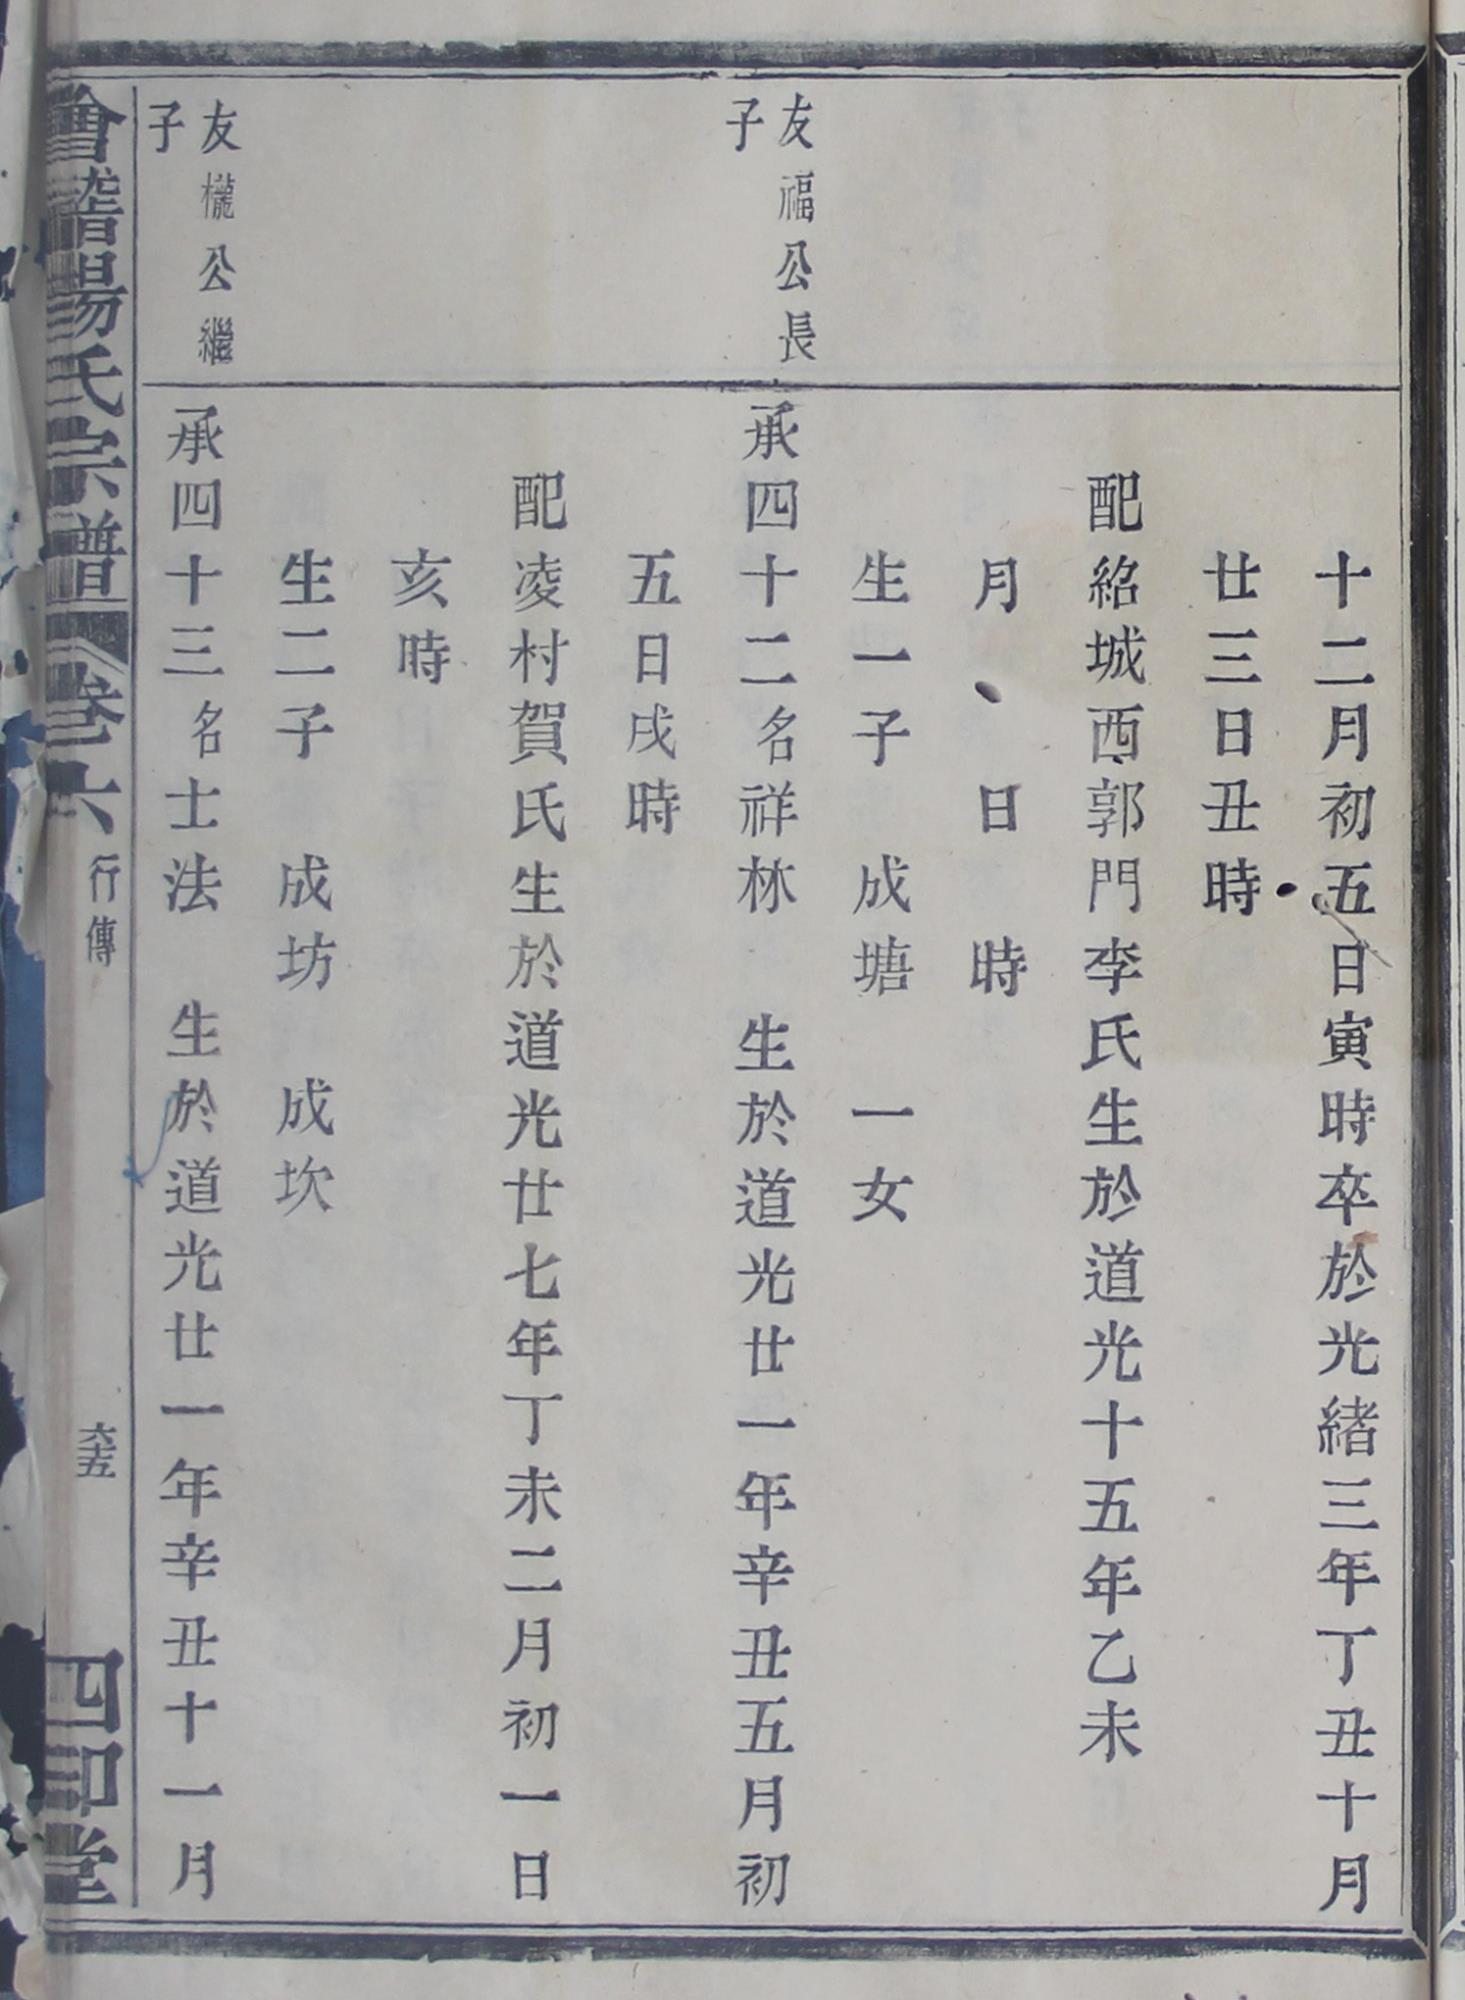 十二月初五日寅時卒於光緒三年丁丑十月
廿三日丑時
配紹城西郭門李氏生於道光十五年乙未
月 日 時
生一子 成塘 一女
友福公長
子
承四十二名祥林 生於道光廿一年辛丑五月初
五日戌時
配凌村賀氏生於道光廿七年丁未二月初一日
亥時
生二子 成坊 成坎
友櫳公繼
子
承四十三名士法 生於道光廿一年辛丑十一月
會稽楊氏宗譜 卷六 行傳 六十五 四印堂